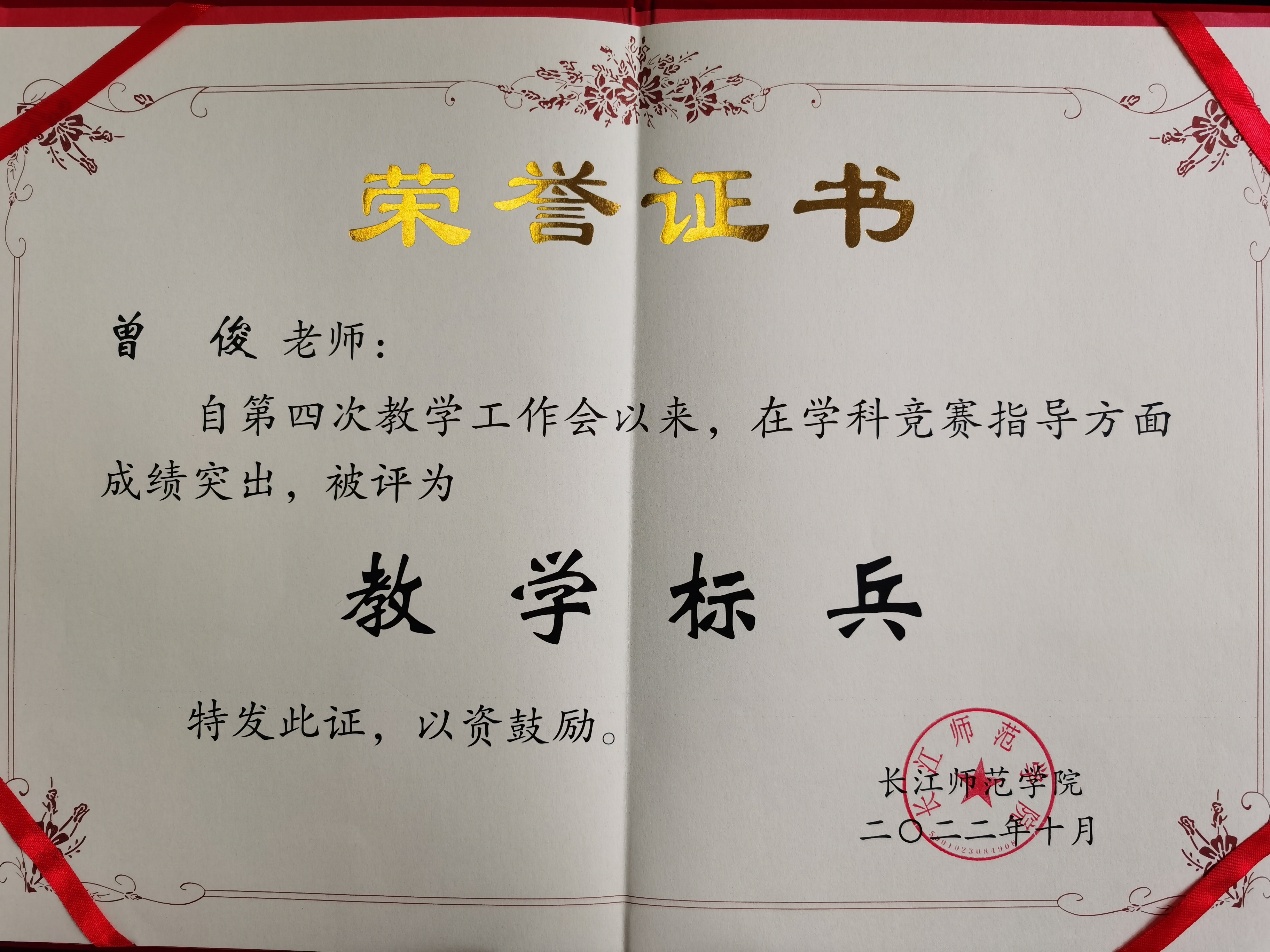 荣誉证书
曾 俊 老师：
自第四次教学工作会以来，在学科竞赛指导方面
成绩突出，被评为
教 学 标 兵
特发此证，以资鼓励。
长江师范学院
长江师范学院
二〇二二年十月